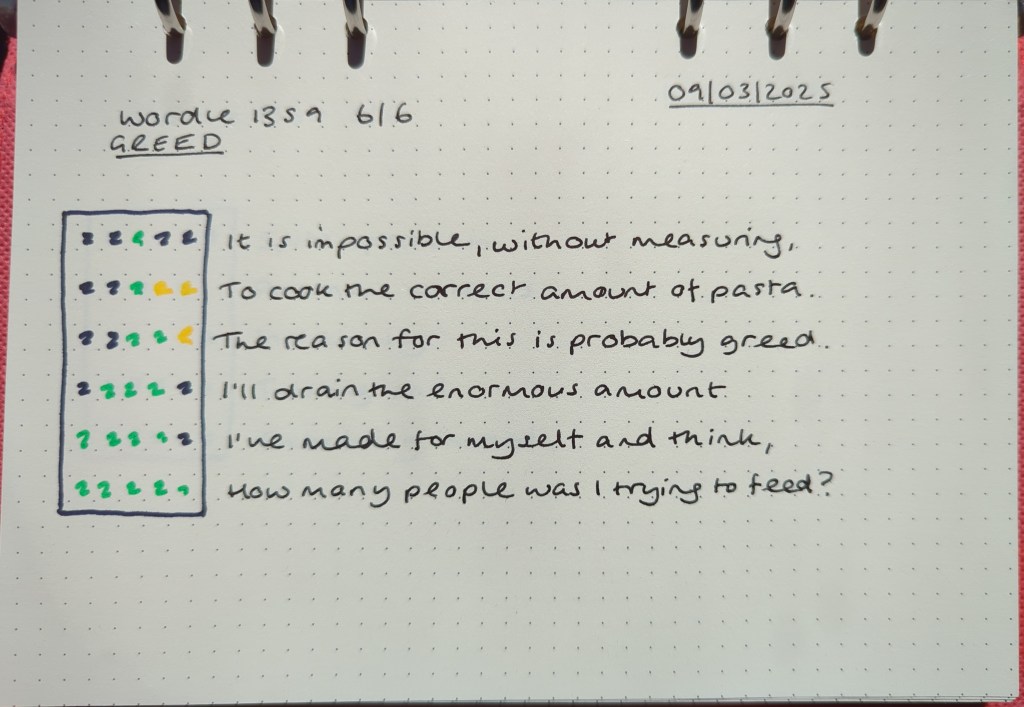 09/03/2025
Wordle 1359 6/6
GREED
It is impossible, without measuring,
To cook the correct amount of pasta.
The reason for this is probably greed.
I'll drain the enormous amount
I've made for myself and think,
How many people was I trying to feed?